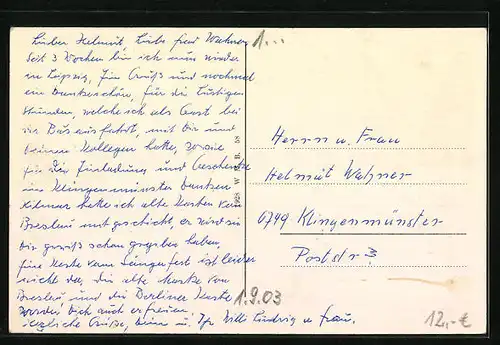 Lieber Helmut, Liebe Frau Wahner
Seit 3 Wochen bin ich nun wieder
in Leipzig, Ein Gruß und nochmal
ein Dankeschön, für die Lustigen
Stunden, welche ich als Gast bei
der Busausfahrt, mit dir und
deinen Kollegen hatte, sowie
für die Einladung und Geschenke
in Klingenmünster danken
hatte ich alte Karten von
Breslau mit geschickt, er wird sie
dir gewiß schon gegeben haben,
Eine Karte vom Sängerfest ist leider
nicht da, die alte Marke von
Breslau und die Berliner Karte
werden Dich auch erfreuen.
Grüße, dein u. Ihr Willi Ludwig u Frau.
1...
Herrn u. Frau
Helmut Wahner
6749 Klingenmünster
Poststr 3
1.9.03
12,-€